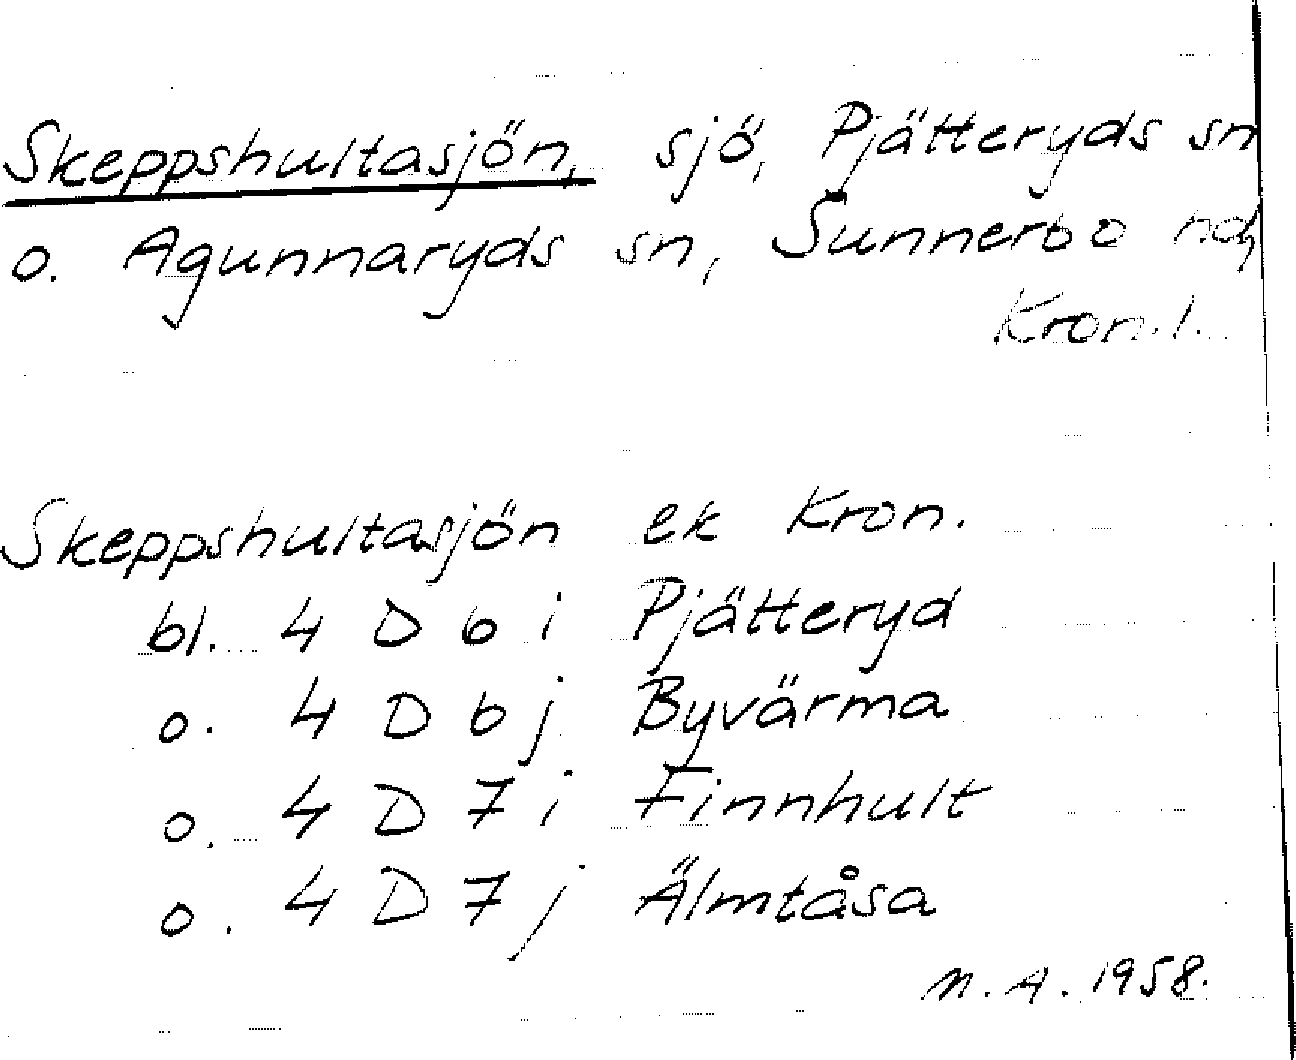 Skeppshultasjön, sjö, Pjätteryds sn
o. Agunnaryds sn, Sunnerbo hd,
Kron. l.
Skeppshultasjön ek Kron.
bl. 4 D 6 i Pjätteryd
o. 4 D 6 j Byvärma
o. 4 D 7 i Finnhult
o. 4 D 7 j Älmtåsa
M. A. 1958.